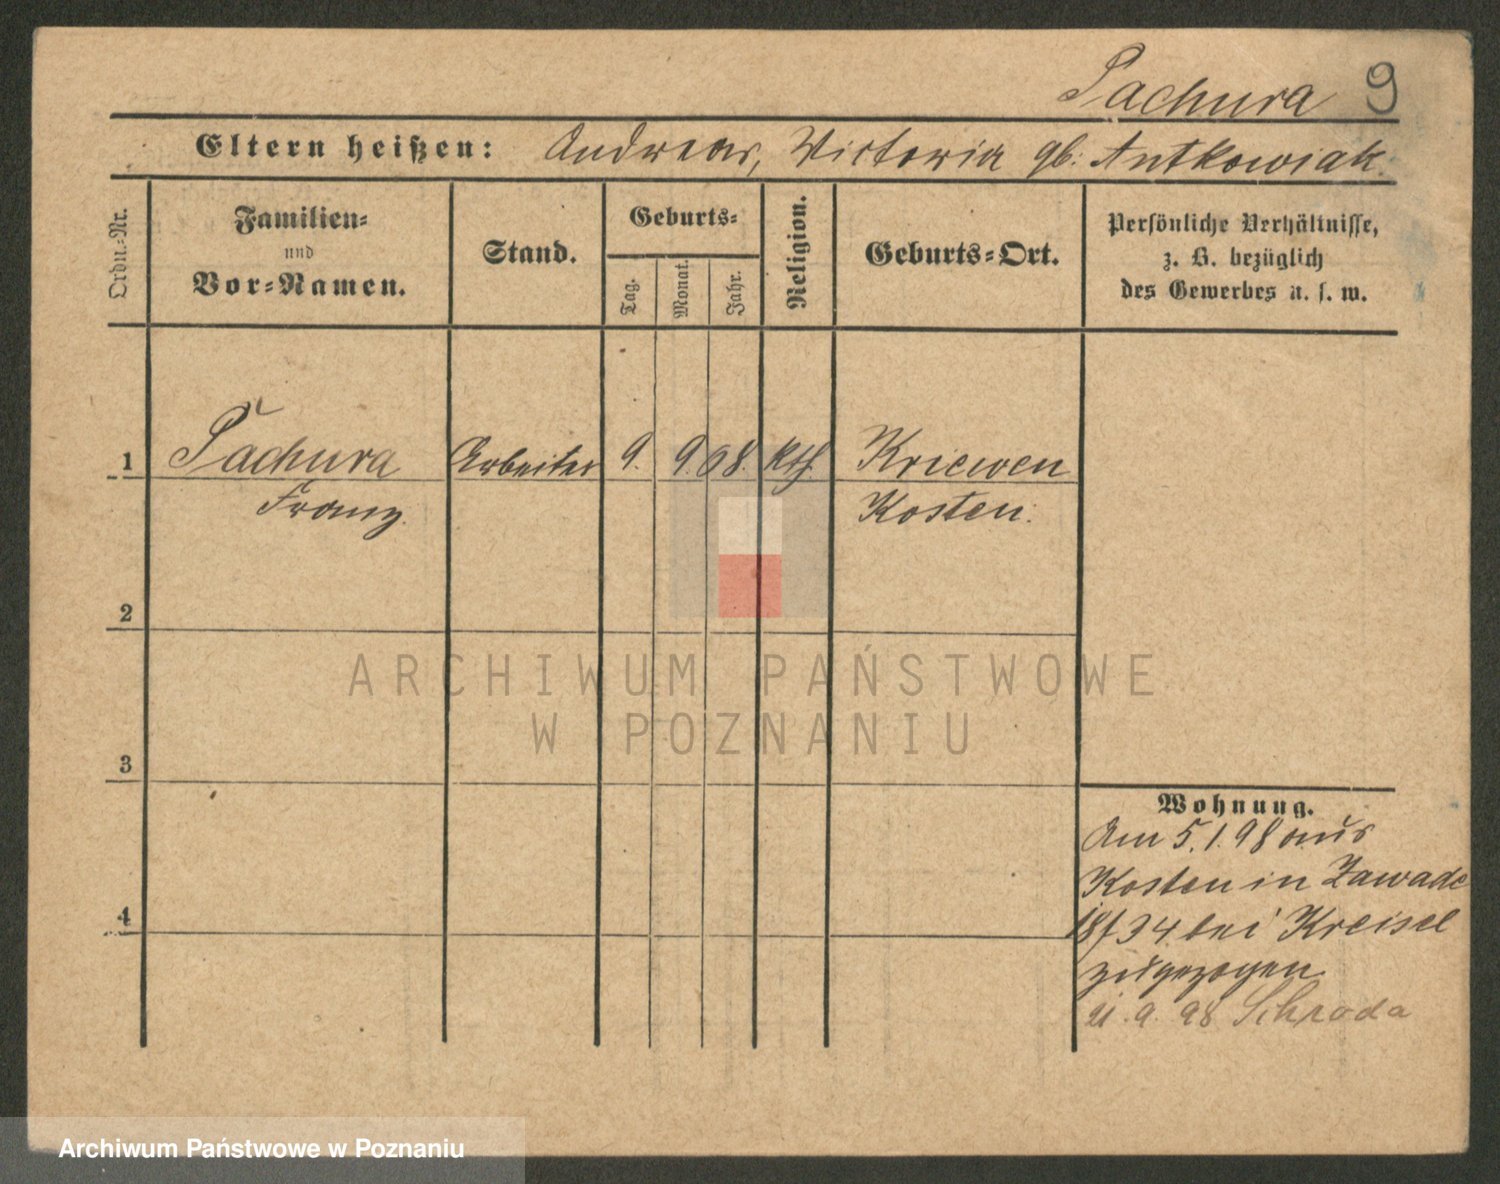 Pachura 9
Eltern heißen: Andreas, Victoria gb: Antkowiak.
Ordn.-Nr.
Familien-
und
Vor-Namen.
Stand.
Geburts-
Tag.
Monat.
Jahr.
Religion.
Geburts-Ort.
Persönliche Verhältnisse,
z. B. bezüglich
des Gewerbes u. s. w.
1 Pachura Arbeiter 9. 9. 68. Kth. Kriewen
Franz. Kosten.
2
3
4
Wohnung.
Am 5.1.98 aus
Kosten in Zawade
18/34 bei Kreisel
zugezogen.
9. 98 Schroda
ARCHIWUM PAŃSTWOWE
W POZNANIU
Archiwum Państwowe w Poznaniu